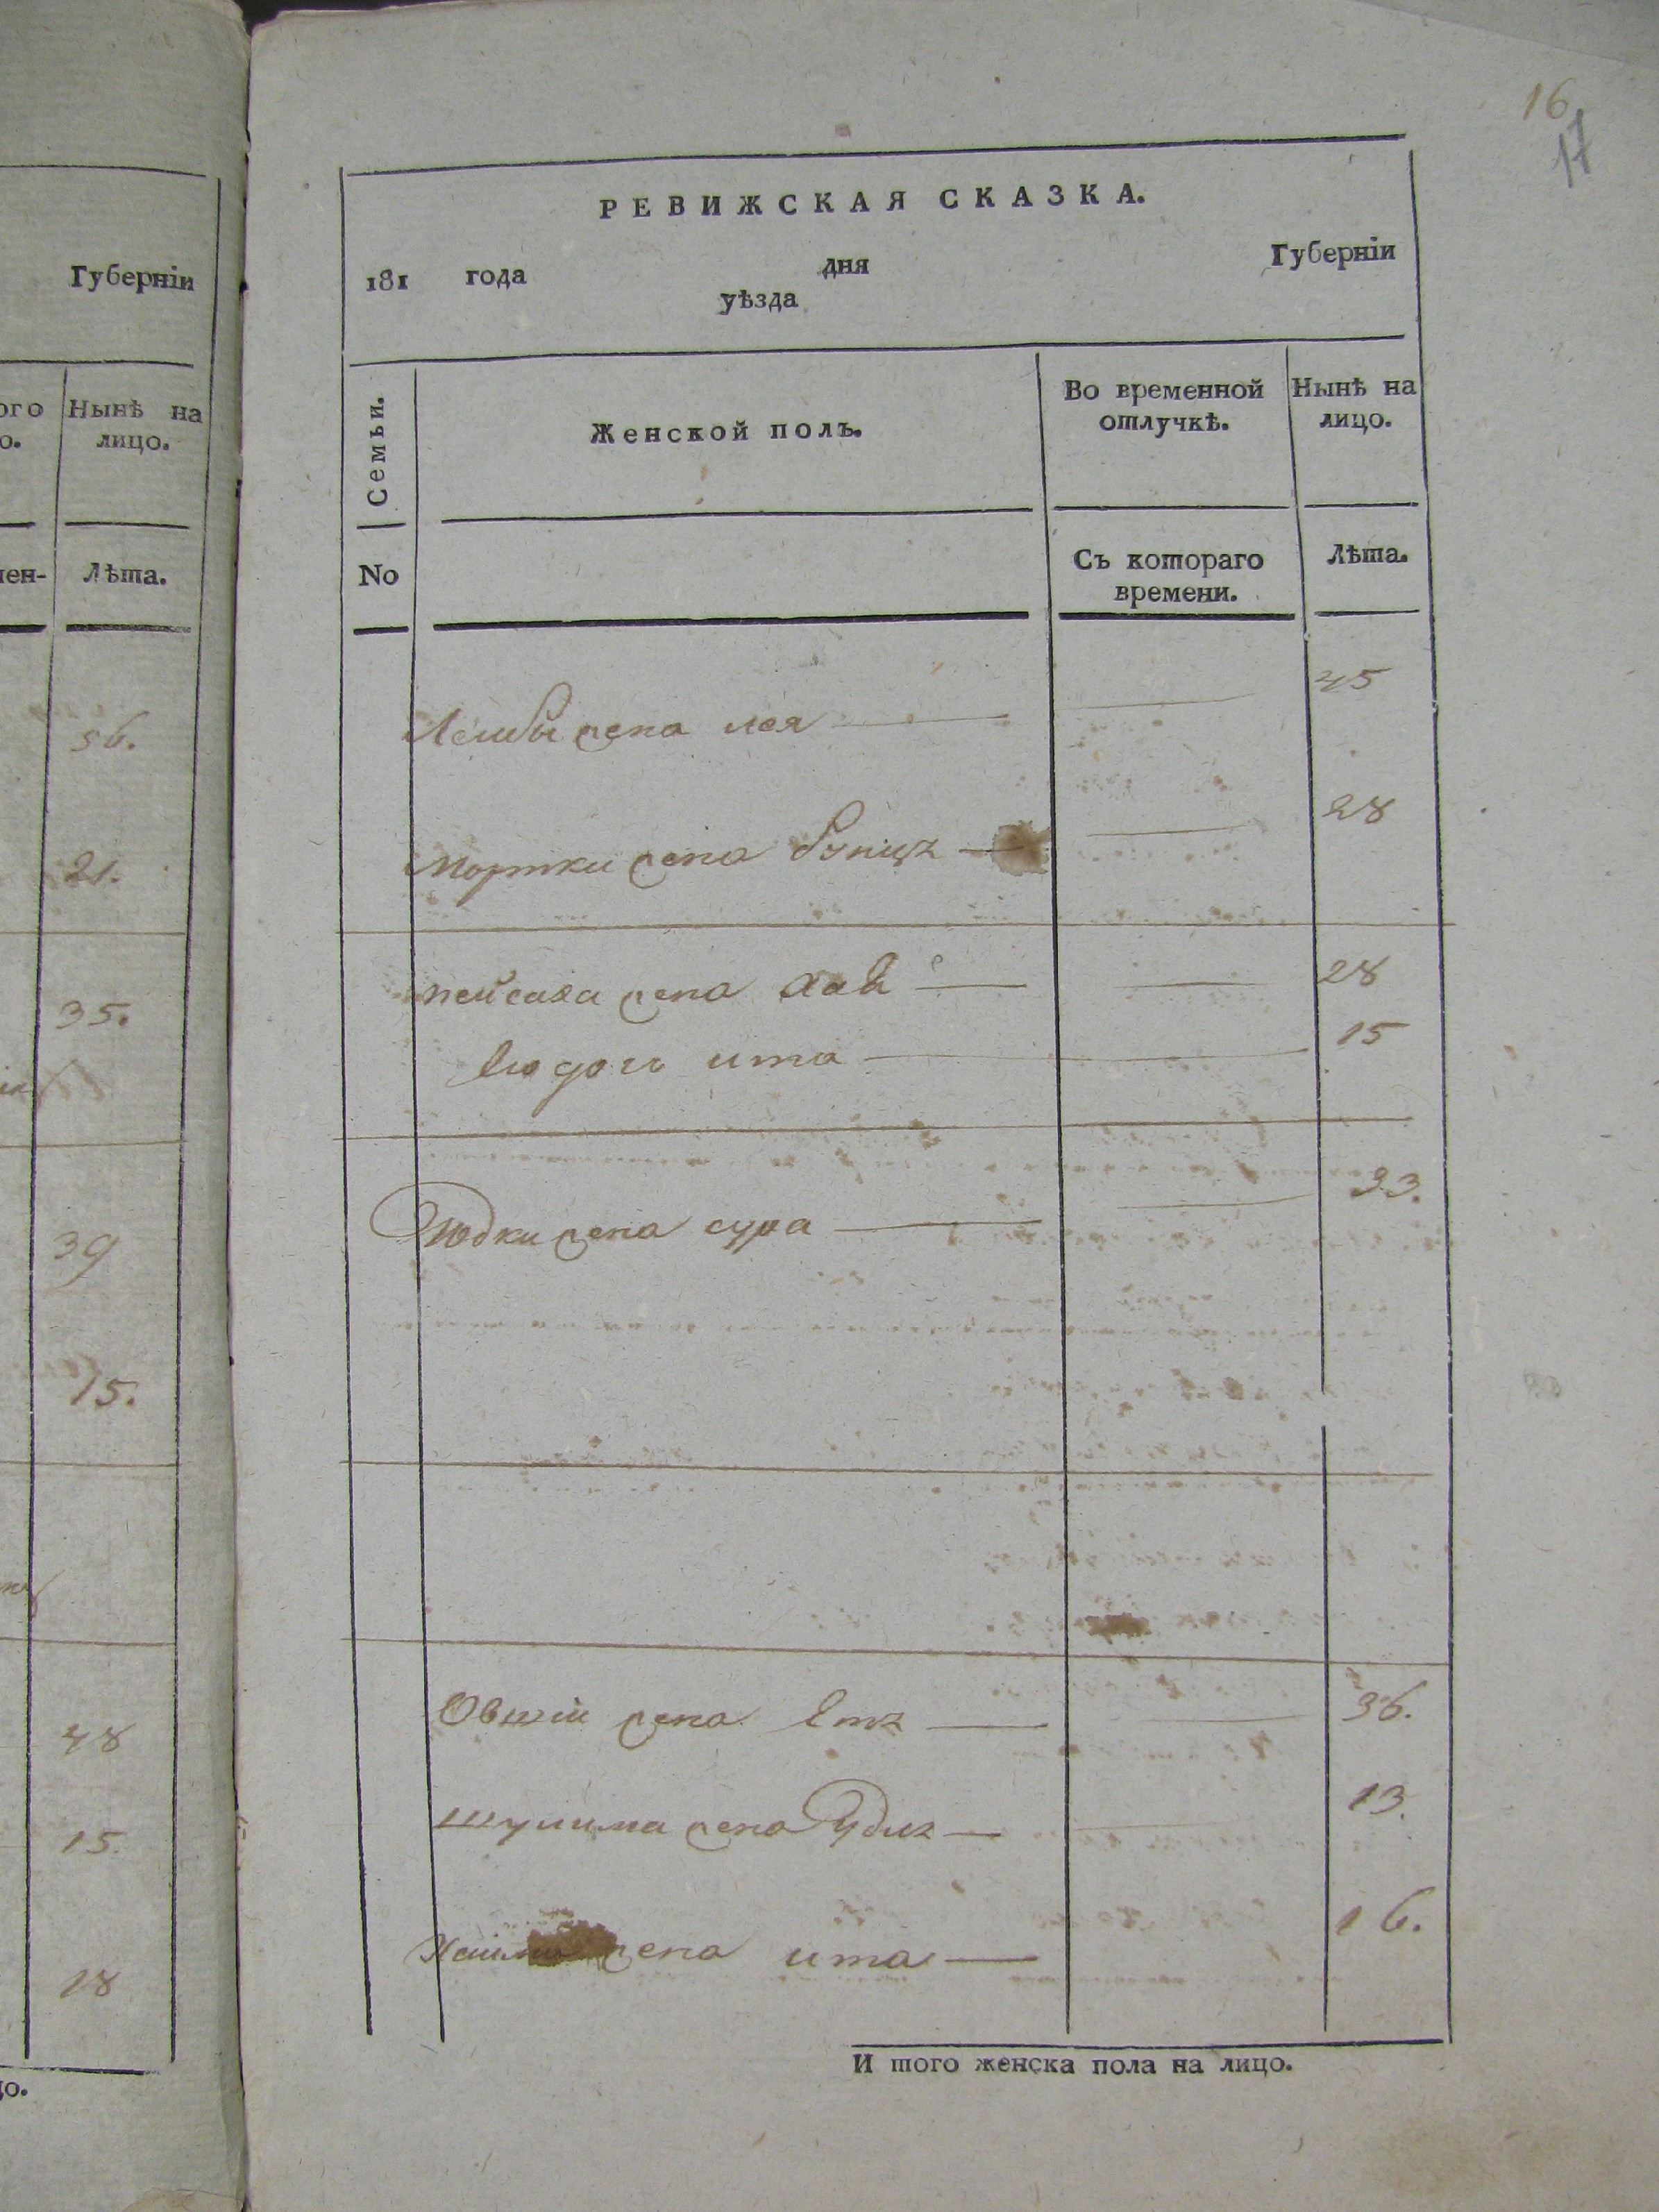 Губерніи
ого Нынѣ на
о. лицо.
мен- Лѣта.
56.
21.
35.
39
15.
48
15.
18
до.
16
17
РЕВИЖСКАЯ СКАЗКА.
181 года дня Губерніи
уѣзда
Семьи. Женской полъ. Во временной Нынѣ на
отлучкѣ. лицо.
No Съ котораго Лѣта.
времени.
Лейбы жена лея 45
Мортки жена 28
пейсаха жена хая 28
ита 15
Юдки жена сура 33.
Овшіи жена 36.
шулима жена 13.
Хаима жена ита 16.
И того женска пола на лицо.